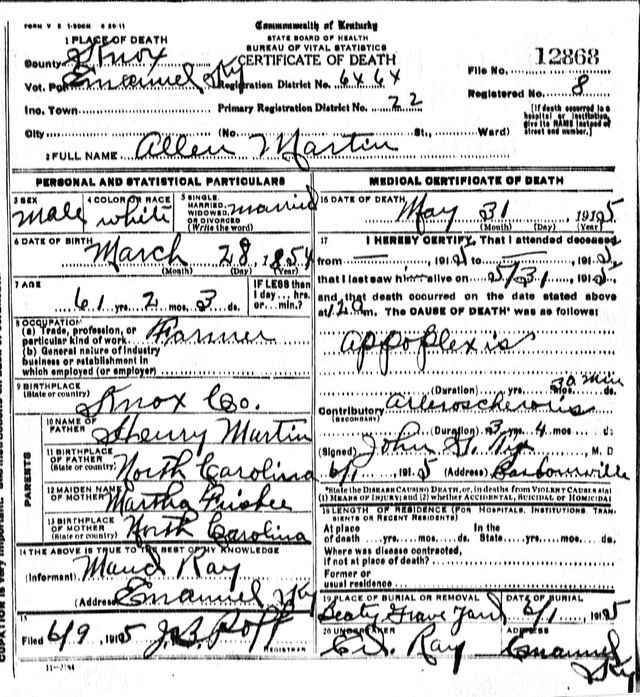 FORM V S 1-50OM 6 20-11
Commonwealth of Kentucky
STATE BOARD OF HEALTH
BUREAU OF VITAL STATISTICS
CERTIFICATE OF DEATH
1 PLACE OF DEATH
County Knox
Vot. Pct Emanuel Ky Registration District No. 6464
File No. 12868
Registered No. 8
Inc. Town Primary Registration District No. 22
[If death occurred in a hospital or institution, give its NAME instead of street and number.]
City (No. St., Ward)
2 FULL NAME Allen Martin
PERSONAL AND STATISTICAL PARTICULARS
3 SEX Male
4 COLOR OR RACE white
5 SINGLE, MARRIED, WIDOWED, OR DIVORCED (Write the word) married
6 DATE OF BIRTH March 28, 1854
(Month) (Day) (Year)
7 AGE 61 yrs. 2 mos. 3 ds.
IF LESS than 1 day... hrs. or...min.?
8 OCCUPATION
(a) Trade, profession, or particular kind of work Farmer
(b) General nature of industry business or establishment in which employed (or employer)
9 BIRTHPLACE (State or country) Knox Co.
PARENTS
10 NAME OF FATHER Henry Martin
11 BIRTHPLACE OF FATHER (State or country) North Carolina
12 MAIDEN NAME OF MOTHER Martha
13 BIRTHPLACE OF MOTHER (State or country) North Carolina
14 THE ABOVE IS TRUE TO THE BEST OF MY KNOWLEDGE
(Informant) Maud Ray
(Address) Emanuel Ky
15
Filed 6/9 1915 J.B.
REGISTRAR
11-3184
MEDICAL CERTIFICATE OF DEATH
16 DATE OF DEATH May 31, 1915
(Month) (Day) (Year)
17 I HEREBY CERTIFY, That I attended deceased
from — , 191 to — , 191
that I last saw him alive on 5/31, 1915
and that death occurred on the date stated above
at m. The CAUSE OF DEATH was as follows:
appoplexis
(Duration) yrs. mos. ds. 30 min
Contributory (SECONDARY)
(Duration) 3 yrs. 4 mos. ds.
(Signed) John G. , M. D
6/1 1915 (Address) Barbourville
*State the DISEASE CAUSING DEATH, or, in deaths from VIOLENT CAUSES state (1) MEANS OF INJURY; and (2) whether ACCIDENTAL, SUICIDAL or HOMICIDAL
18 LENGTH OF RESIDENCE (FOR HOSPITALS, INSTITUTIONS, TRANSIENTS OR RECENT RESIDENTS)
At place of death yrs. mos. ds. In the State yrs. mos. ds.
Where was disease contracted, if not at place of death?
Former or usual residence
19 PLACE OF BURIAL OR REMOVAL Beaty Grave Yard
DATE OF BURIAL 6/1 1915
20 UNDERTAKER Ray
ADDRESS Emanuel Ky